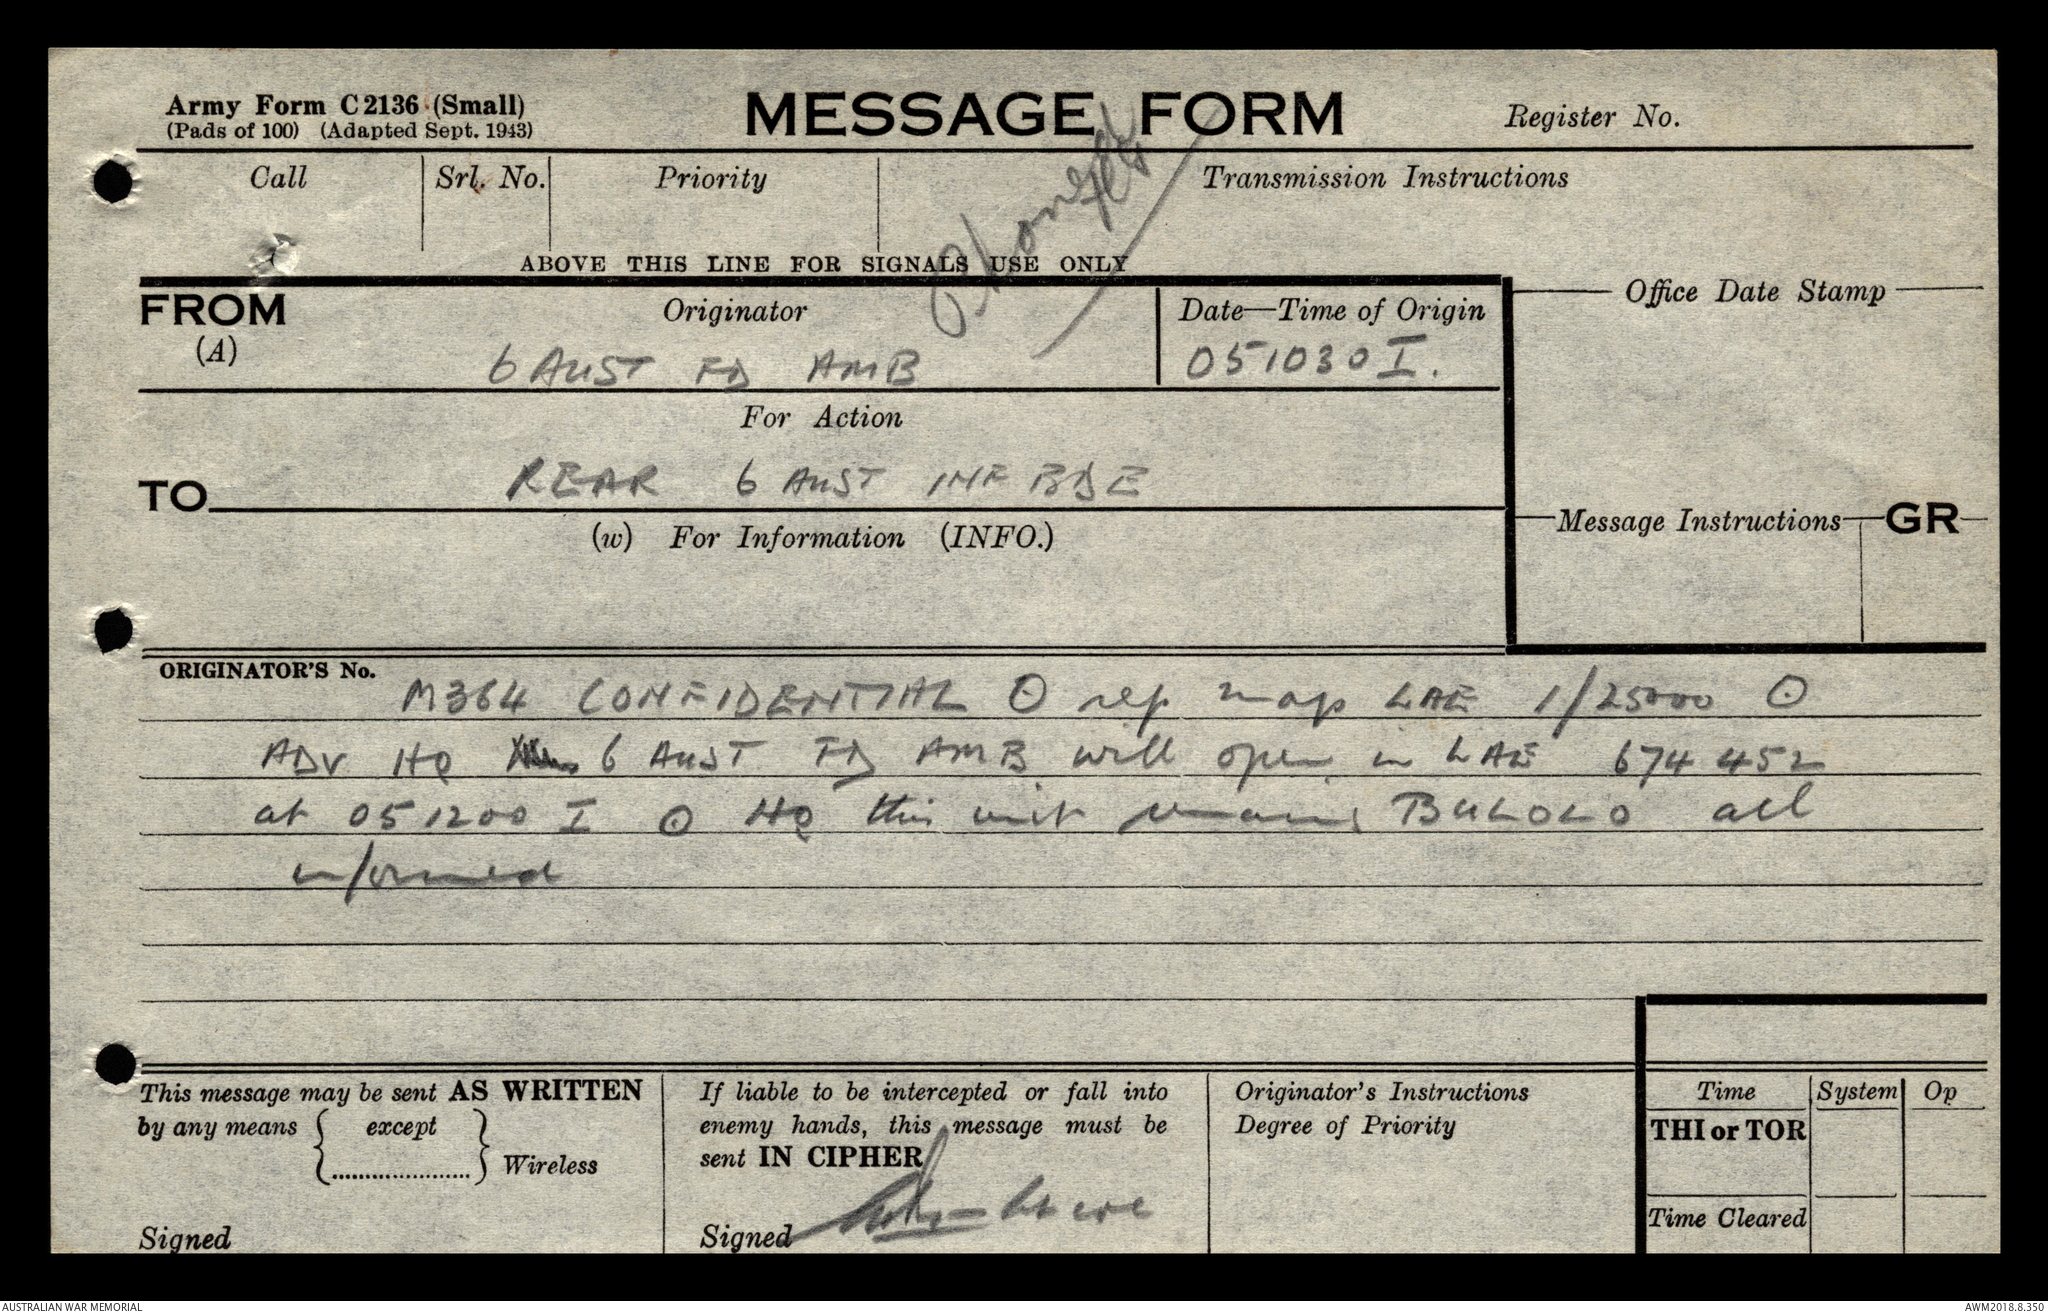 Army Form C2136 (Small)
(Pads of 100) (Adapted Sept. 1943)
MESSAGE FORM
Register No.
Call
Srl. No.
Priority
Transmission Instructions
Phoned
ABOVE THIS LINE FOR SIGNALS USE ONLY
FROM
(A)
Originator
6 AUST FD AMB
Date—Time of Origin
051030 I.
Office Date Stamp
For Action
TO
REAR 6 AUST INF BDE
(w) For Information (INFO.)
Message Instructions
GR
ORIGINATOR'S No.
M364 CONFIDENTIAL ⊙ ref map LAE 1/25000 ⊙
ADV HQ 6 AUST FD AMB will open in LAE 674452
at 051200 I ⊙ HQ this unit remains BULOLO all
informed
This message may be sent AS WRITTEN
by any means { except
....................... } Wireless
Signed
If liable to be intercepted or fall into
enemy hands, this message must be
sent IN CIPHER
Signed
Originator's Instructions
Degree of Priority
Time
System
Op
THI or TOR
Time Cleared
AUSTRALIAN WAR MEMORIAL
AWM2018.8.350